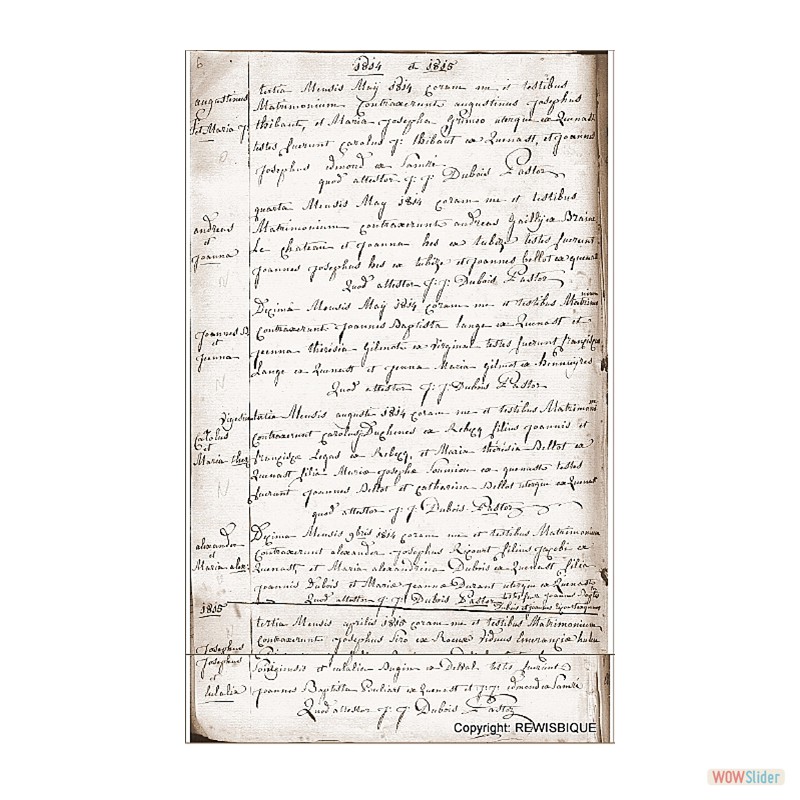 6
1814 et 1815
augustinus
et Maria J:
tertia Mensis Maÿ 1814 coram me et testibus
Matrimonium contraxerunt augustinus Josephus
thibaut, et Maria Josepha utergue ex Quenast
testes fuerunt carolus J: thibaut ex Quenast, et Joannes
Josephus edmond ex
quod attestor J: J: Dubois Pastor
andreas
et
Joanna
quarta Mensis May 1814 coram me et testibus
Matrimonium contraxerunt andreas ex Braine
Le chateau et Joanna hes ex tubize testes fuerunt
Joannes Josephus hes ex tubize et Joannes bellot ex quenast
Quod attestor J: J: Dubois Pastor
Joannes B:
et
Joenna
Decima Mensis Maÿ 1814 coram me et testibus Matrimonium
contraxerunt Joannes Baptista lange ex Quenast et
Joenna thérésia Gilmot ex Virginal testes fuerunt francisque
Lange ex Quenast et Joenna Maria gilmot ex hennuyres
Quod attestor J: J: Dubois Pastor
Carolus
et
Maria ther
tertia Mensis augusti 1814 coram me et testibus Matrimoni
contraxerunt carolus Duchenes ex Rebecq filius Joannis et
francisca Legas ex Rebecq, et Maria thérésia Bellot ex
Quenast filia Maria Josepha ex quenast testes
fuerunt Joannes Bellot et catharina Bellot uterque ex Quenast
quod attestor J: J: Dubois Pastor
alexander
et
Maria alex:
Decima Mensis 9bris 1814 coram me et testibus Matrimonium
contraxerunt alexander Josephus Ricourt filius Jacobi ex
Quenast, et Maria alexandrina Dubois ex Quenast filia
Joannis Dubois et Maria Jeanne Durant uterque ex Quenast
Quod attestor J: J: Dubois Pastor
1815
Josephus
tertia Mensis aprilis 1815 coram me et testibus Matrimonium
contraxerunt Josephus Siro ex Roeux viduus
Josephus
et
Eulalia
et eulalia Bugin ex testes fuerunt
Joannes Baptista Pouliart ex Quenast et J: J: edmond ex
Quod attestor J: J: Dubois Pastor
Copyright: REWISBIQUE
WOWSlider